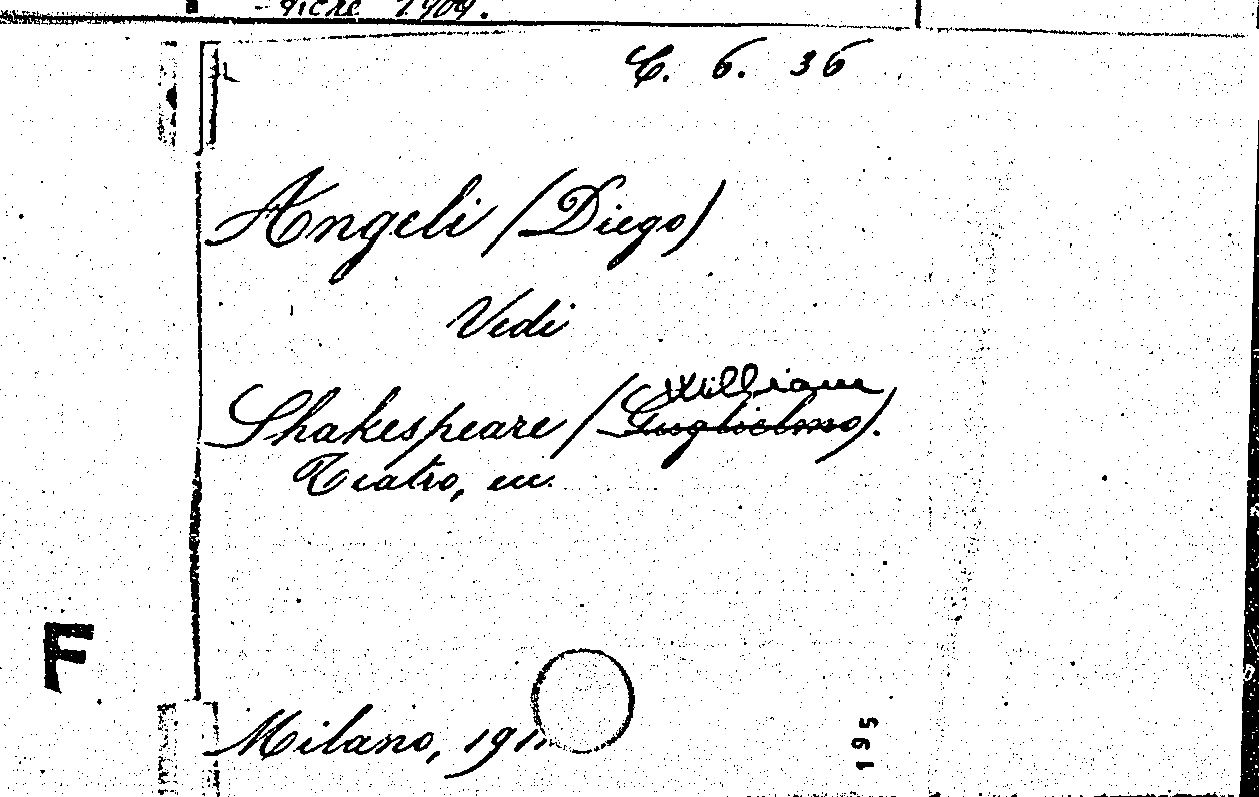 1909.
C. 6. 36
Angeli (Diego)
Vedi
William
Shakespeare (Guglielmo).
Teatro, ecc.
F
Milano, 191
195